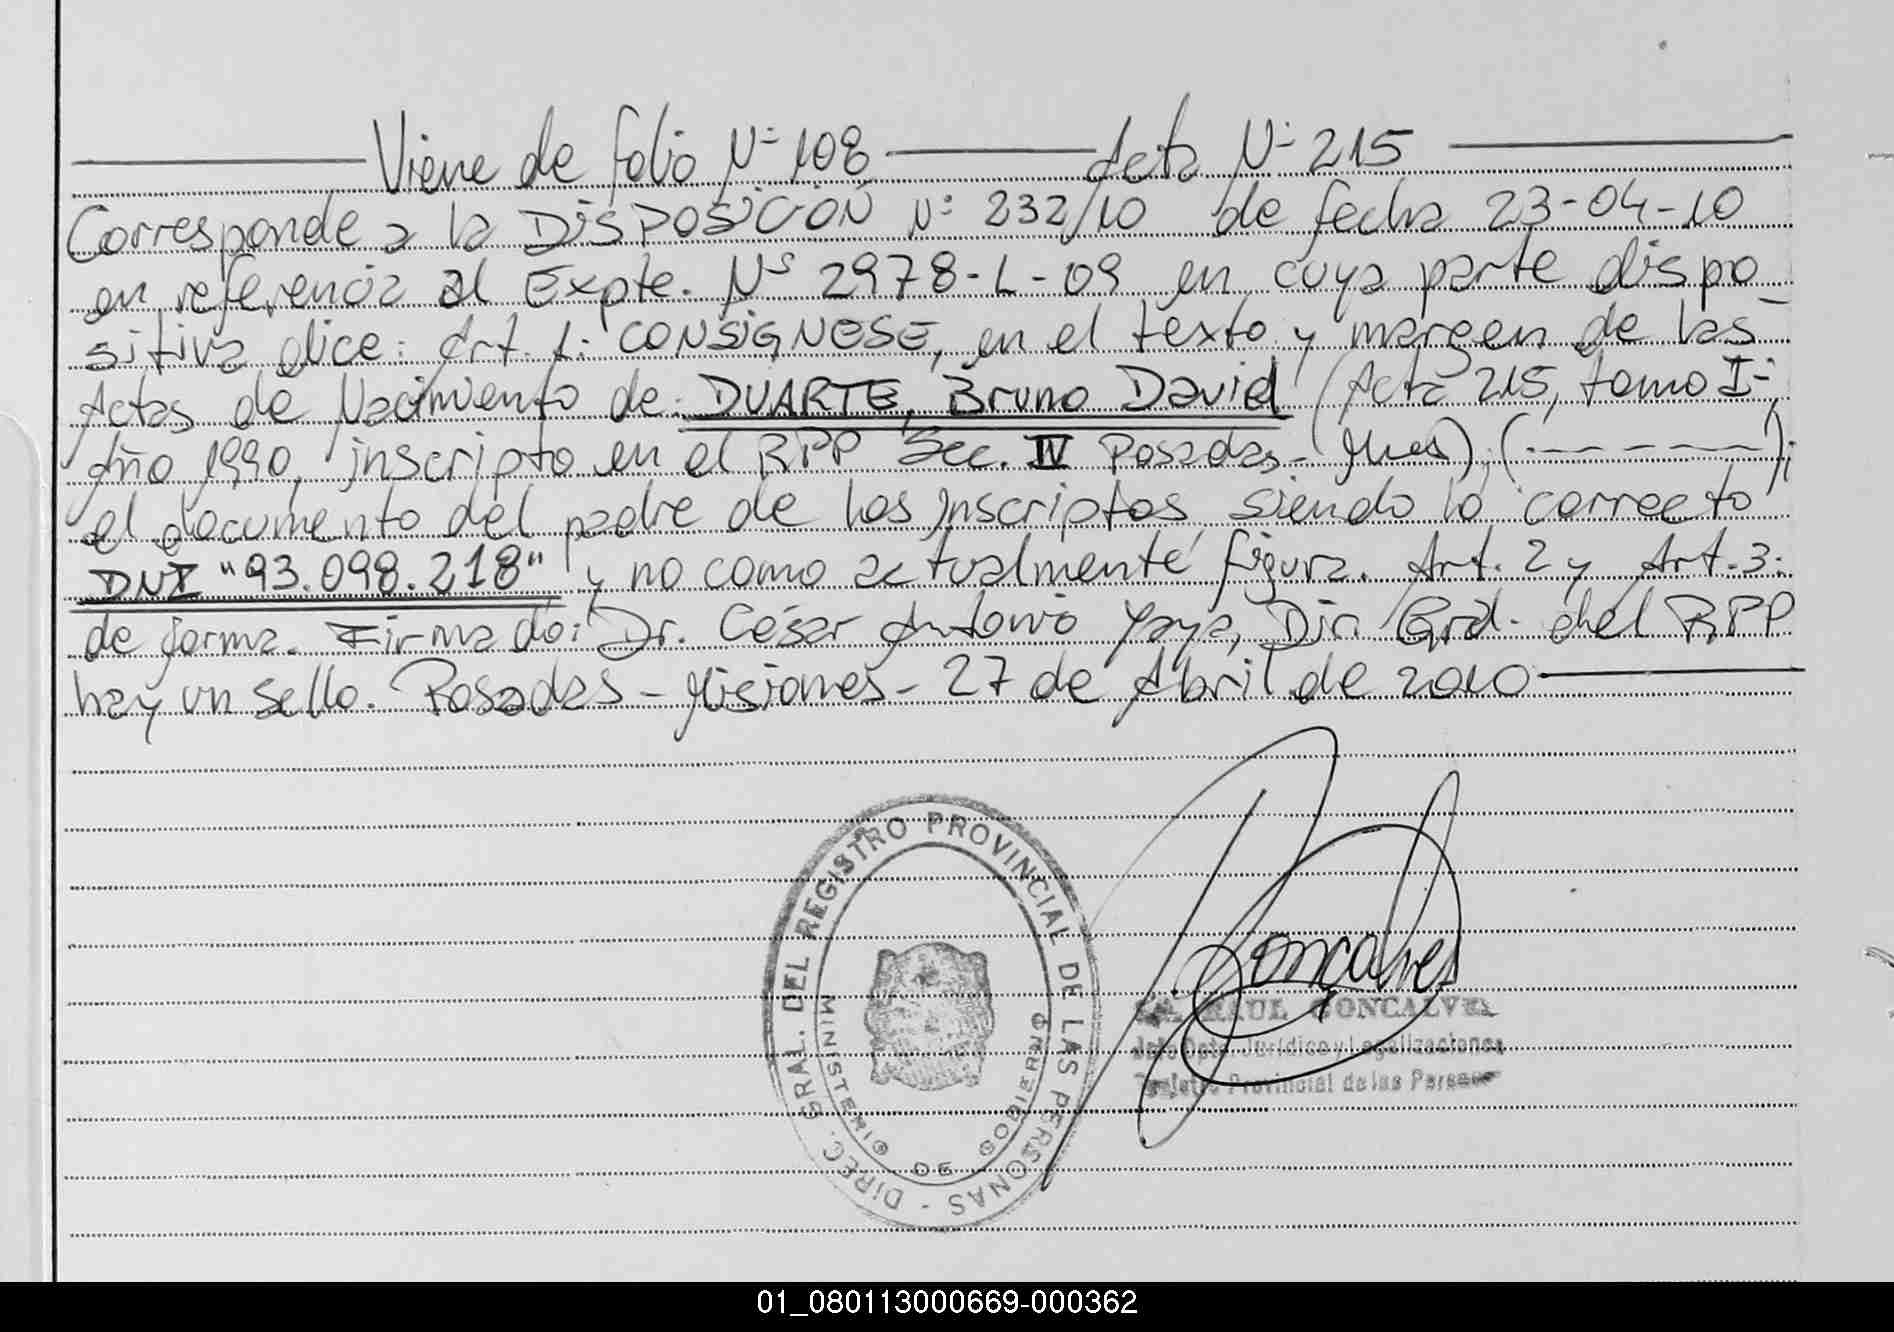 Viene de folio Nº 108 Acta Nº 215
Corresponde a la DISPOSICIÓN Nº 232/10 de fecha 23-04-10
en referencia al Expte. Nº 2978-L-09 en cuya parte dispo
sitiva dice: Art. 1: CONSIGNESE, en el texto y margen de las
Actas de Nacimiento de DUARTE, Bruno David (Acta 215, tomo I-
Año 1990, inscripto en el RPP Sec. IV Posadas- Mnes), (- - - - - -);
el documento del padre de los inscriptos, siendo lo correcto
DNI "93.098.218" y no como actualmente figura. Art. 2 y Art. 3:
de forma. Firmado: Dr. César Antonio Yaya, Dir. Gral. del RPP
hay un sello. Posadas - Misiones - 27 de Abril de 2010
DIREC. GRAL. DEL REGISTRO PROVINCIAL DE LAS PERSONAS -
MINISTERIO DE GOBIERNO
Gonçalves
RAUL GONCALVES
Jefe Dpto. Jurídico y Legalizaciones
Registro Provincial de las Personas
01_080113000669-000362